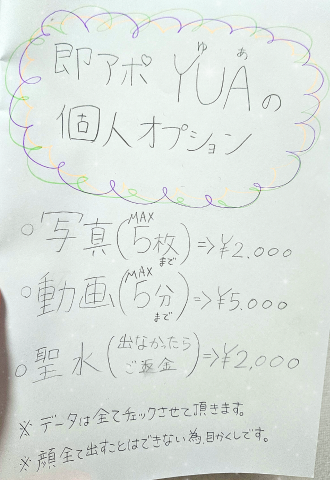 即アポ YUAの
ゆ あ
個人オプション
○写真(MAX 5枚まで)⇒¥2.000
○動画(MAX 5分まで)⇒¥5.000
○聖水(出なかったらご返金)⇒¥2,000
※ データは全てチェックさせて頂きます。
※ 顔全て出すことはできない為、目かくしです。